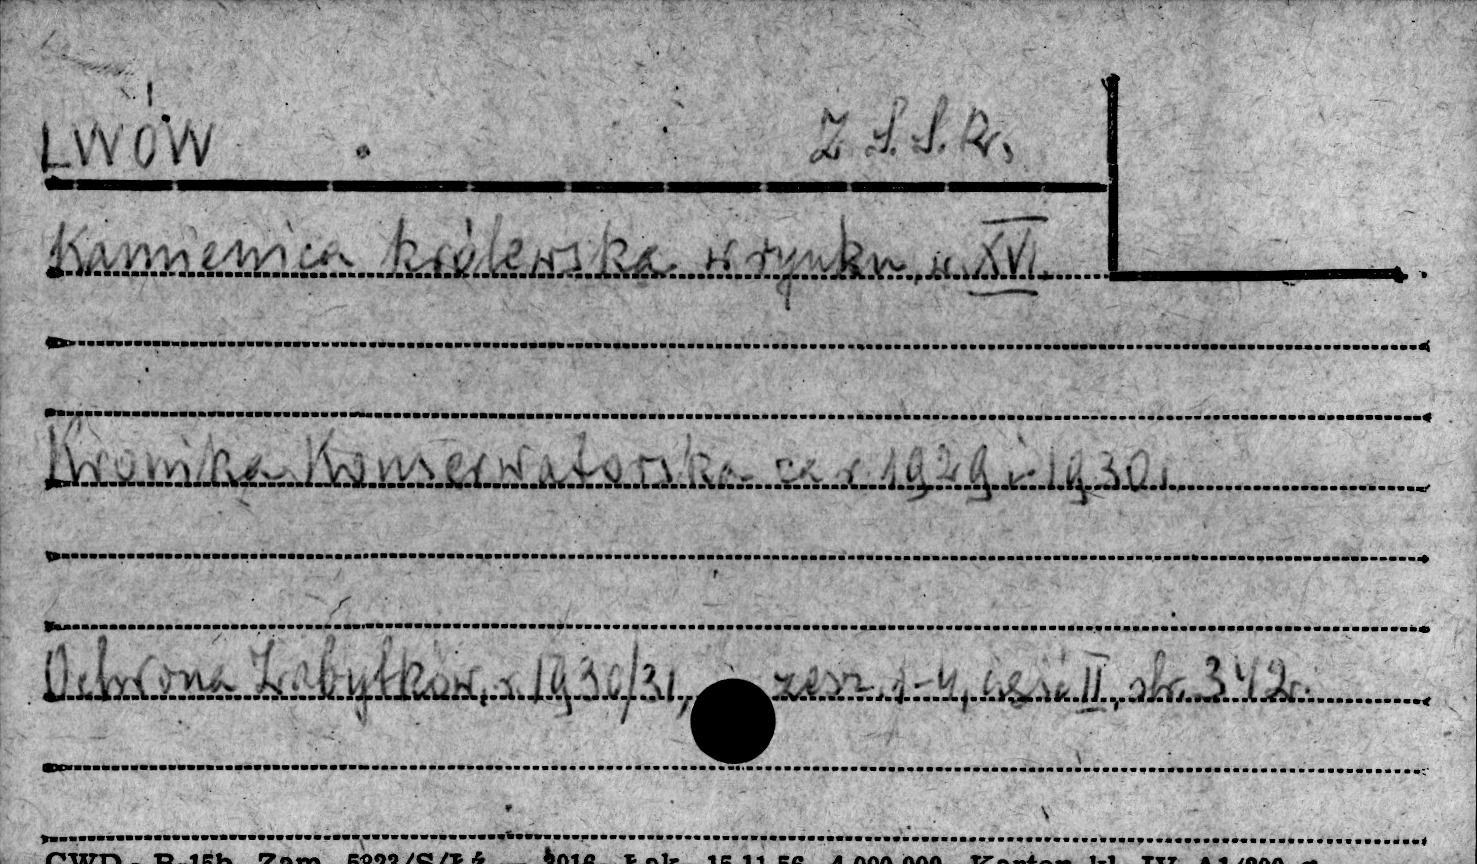 LWÓW Z.S.S.R.
Kamienica królewska w rynku, w. XVI.
Kronika Konserwatorska za r. 1929 i 1930.
Ochrona Zabytków, r. 1930/31, zesz. 1-4, część II, str. 342.
CWD - B-15b Zam. 5822/S/Łź — 2016 - Łąk. 15.11.56 4.000.000 Karton kl. IV A1/200 g